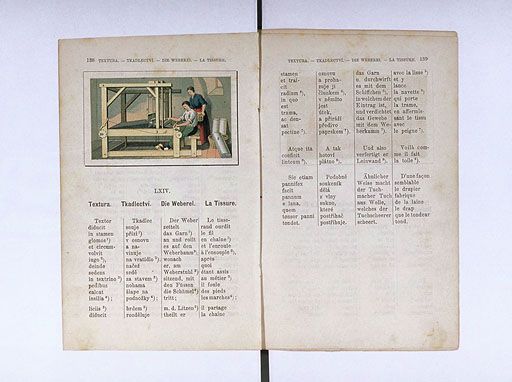 138 TEXTURA. — TKADLECTVÍ. — DIE WEBEREI. — LA TISSURE.
LXIV.
Textura. Tkadlectví. Die Weberei. La Tissure.
Textor Tkadlec Der Weber Le tisse-
diducit snuje zettelt rand ourdit
in stamen přízi¹) das Garn¹) le fil
glomos¹) v osnovu an und rollt en chaîne¹)
et circum- a na- es auf den et l'enroule
volvit vinuje Weberbaum²), à l'ensouple²),
jugo²), na vratidlo²); wonach après
deinde načež er, am quoi
sedens sedě Weberstuhl³) étant assis
in textrino³) za stavem³) sitzend, mit au métier³)
pedibus nohama den Füssen il foule
calcat šlape na die Schämel⁴) des pieds
insilia⁴); podnožky⁴); tritt; les marches⁴);
liciis⁵) brdem⁵) m. d. Litzen⁵) il partage
diducit rozděluje theilt er la chaîne
TEXTURA. — TKADLECTVÍ. — DIE WEBEREI. — LA TISSURE. 139
stamen osnovu das Garn avec la lisse⁵)
et traj- a proha- u. durchwirft et y
cit zuje ji es mit dem lance
radium⁶), člunkem⁶), Schiffchen⁶), la navette⁶)
in quo v němžto in welchem der qui porte
est jest Eintrag ist, la trame,
trama, útek, und verdichtet en affermis-
ac den- a přiráží das Gewebe sant le tissu
sat předivo mit dem We- avec
pectine⁷). paprskem⁷). berkamm⁷). le peigne⁷).
Atque ita A tak Und also Voilà com-
conficit hotoví verfertigt er me il fait
linteum⁸). plátno⁸). Leinwand⁸). la toile⁸).
Sic etiam Podobně Ähnlicher D'une façon
pannifex soukeník Weise macht semblable
facit dělá der Tuch- le drapier
pannum z vlny macher Tuch fabrique
e lana, sukno, aus Wolle, de la laine
quem které welches der le drap
tonsor panni postřihač Tuchscheerer que le tondeur
tondet. postřihuje. scheert. tond.